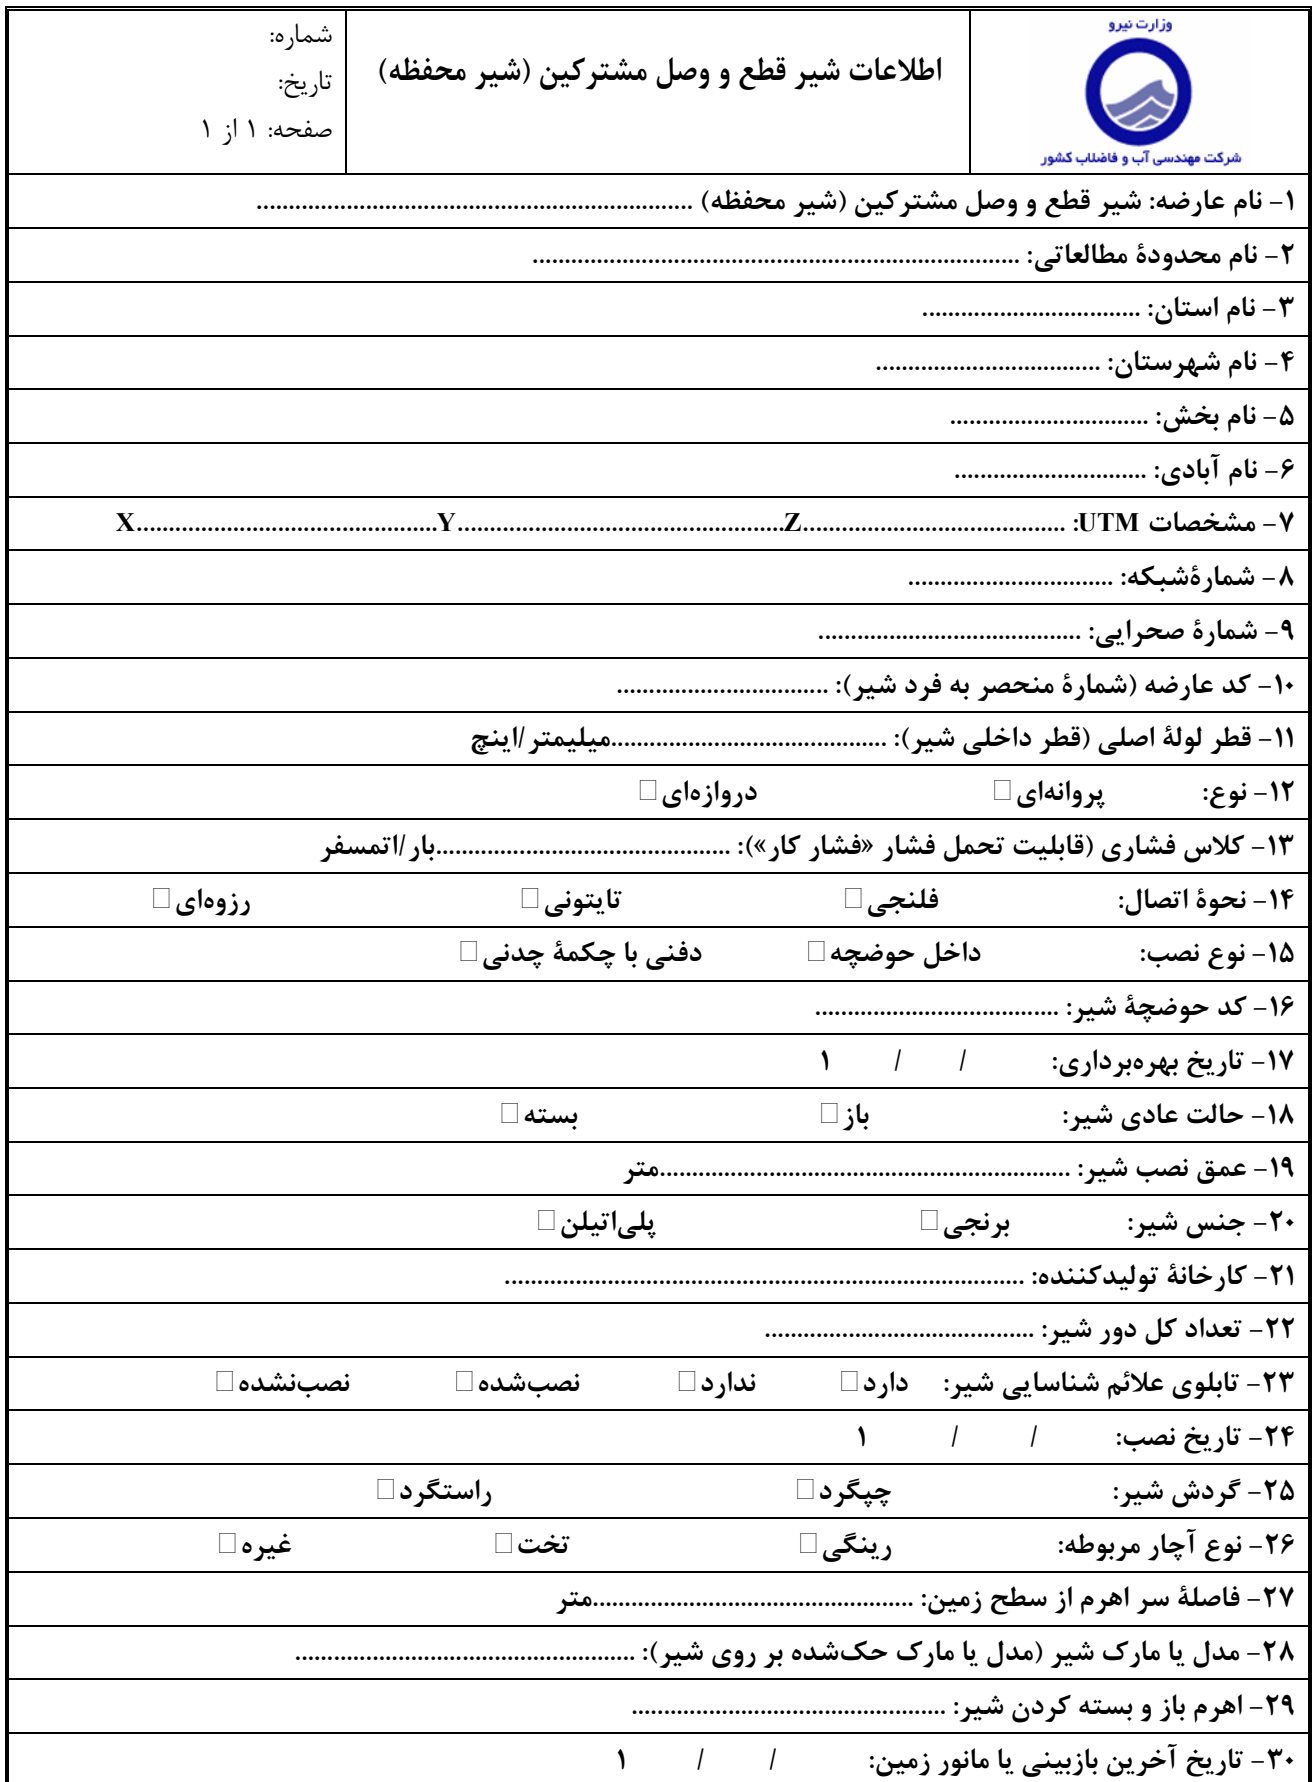 وزارت نیرو
شرکت مهندسی آب و فاضلاب کشور
اطلاعات شیر قطع و وصل مشترکین (شیر محفظه)
شماره:
تاریخ:
صفحه: ۱ از ۱
۱- نام عارضه: شیر قطع و وصل مشترکین (شیر محفظه) ....................................................................
۲- نام محدودۀ مطالعاتی: ............................................................................
۳- نام استان: ..................................
۴- نام شهرستان: ...................................
۵- نام بخش: ...............................
۶- نام آبادی: ..............................
۷- مشخصات UTM: .........................................Z...................................................Y...............................................X
۸- شمارۀشبکه: ................................
۹- شمارۀ صحرایی: .........................................
۱۰- کد عارضه (شمارۀ منحصر به فرد شیر): .................................
۱۱- قطر لولۀ اصلی (قطر داخلی شیر): ...........................................میلیمتر/اینچ
۱۲- نوع: پروانه‌ای□ دروازه‌ای□
۱۳- کلاس فشاری (قابلیت تحمل فشار «فشار کار»): ..............................................بار/اتمسفر
۱۴- نحوۀ اتصال: فلنجی□ تایتونی□ رزوه‌ای□
۱۵- نوع نصب: داخل حوضچه□ دفنی با چکمۀ چدنی□
۱۶- کد حوضچۀ شیر: ......................................
۱۷- تاریخ بهره‌برداری: / / ۱
۱۸- حالت عادی شیر: باز□ بسته□
۱۹- عمق نصب شیر: ................................................................متر
۲۰- جنس شیر: برنجی□ پلی‌اتیلن□
۲۱- کارخانۀ تولیدکننده: .................................................................................
۲۲- تعداد کل دور شیر: ..........................................
۲۳- تابلوی علائم شناسایی شیر: دارد□ ندارد□ نصب‌شده□ نصب‌نشده□
۲۴- تاریخ نصب: / / ۱
۲۵- گردش شیر: چپگرد□ راستگرد□
۲۶- نوع آچار مربوطه: رینگی□ تخت□ غیره□
۲۷- فاصلۀ سر اهرم از سطح زمین: ..................................................متر
۲۸- مدل یا مارک شیر (مدل یا مارک حک‌شده بر روی شیر): .....................................................
۲۹- اهرم باز و بسته کردن شیر: .................................................
۳۰- تاریخ آخرین بازبینی یا مانور زمین: / / ۱